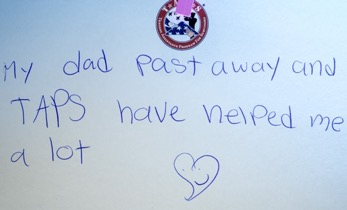 My dad past away and
TAPS have helped me
a lot